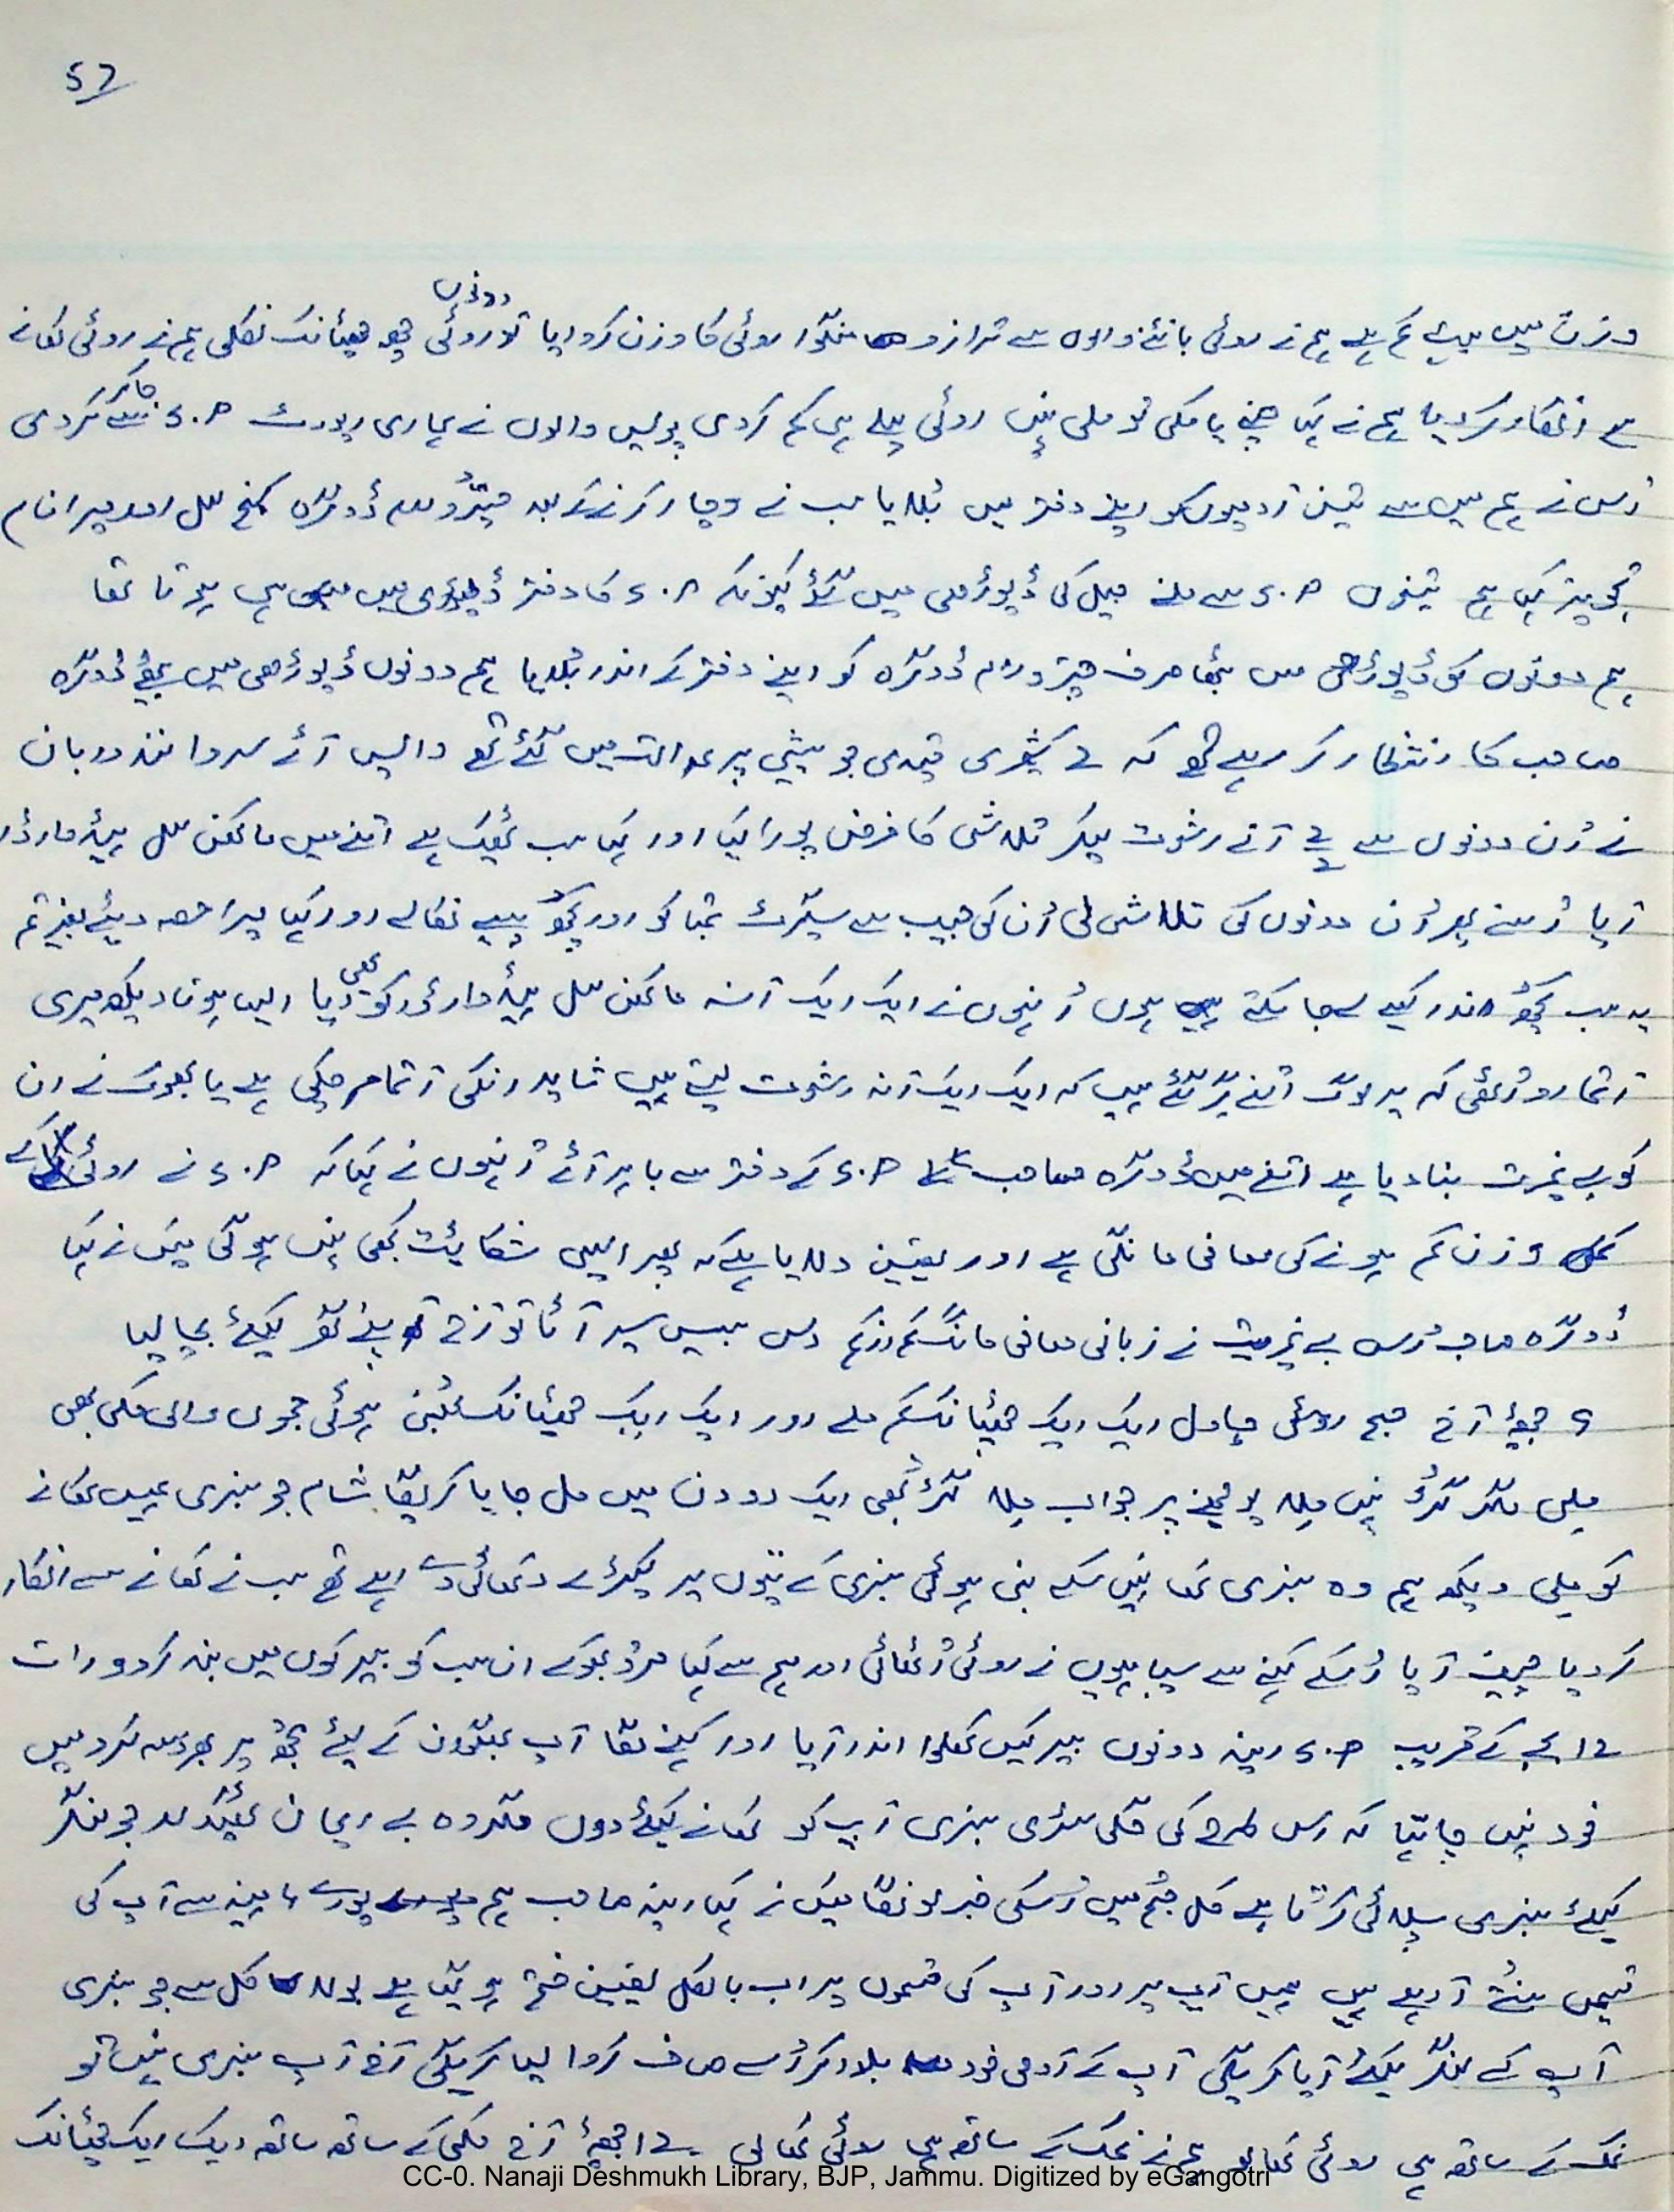 57
دونوں
وزن میں بہت کم ہے ہم نے روٹی بانٹنے والوں سے ترازو منگوا روٹی کا وزن کروایا تو روٹی چھ چھٹانک نکلی ہم نے روٹی کھانے
سے انکار کر دیا ہم نے کہا چینے یا مکی تو ملی نہیں روٹی پہلے ہی کم کر دی پولیس والوں نے ہماری رپورٹ D.S سے جا کر کر دی
اس نے ہم میں سے تین آدمیوں کو اپنے دفتر میں بلایا سب نے وچار کرنے کے بعد چترو رام ڈوگرہ کنج لال اور میرا نام
تجویز کیا ہم تینوں D.S سے ملنے جیل کی ڈیوڑھی میں گئے کیونکہ D.S کا دفتر ڈیوڑھی میں ہی ہوتا تھا
ہم دونوں کو ڈیوڑھی میں بٹھا صرف چترو رام ڈوگرہ کو اپنے دفتر کے اندر بلایا ہم دونوں ڈیوڑھی میں بیٹھے ڈوگرہ
صاحب کا انتظار کر رہے تھے کہ 2 کشمیری قیدی جو پیشی پر عدالت میں گئے تھے واپس آئے سروانند دربان
نے ان دونوں سے 2 آنے رشوت لیکر تلاشی کا فرض پورا کیا اور کہا سب ٹھیک ہے اتنے میں ماکھن لال ہیڈ وارڈر
آیا اسنے پھر ان دونوں کی تلاشی لی ان کی جیب سے سیگرٹ تمباکو اور کچھ پیسے نکالے اور کہا میرا حصہ دیئے بغیر تم
یہ سب کچھ اندر کیسے لے جا سکتے ہو انہوں نے ایک ایک آنہ ماکھن لال ہیڈ وارڈر کو بھی دیا ایسا ہوتا دیکھ میری
آتما رو اٹھی کہ یہ لوگ اتنے گر گئے ہیں کہ ایک ایک آنہ رشوت لیتے ہیں شاید انکی آتما مر چکی ہے یا بھوک نے ان
کو بے غیرت بنا دیا ہے اتنے میں ڈوگرہ صاحب D.S کے دفتر سے باہر آئے انہوں نے کہا کہ D.S نے روٹی کے
وزن کم ہونے کی معافی مانگی ہے اور یقین دلایا ہے کہ پھر ایسی شکائیت کبھی نہیں ہوگی میں نے کہا
ڈوگرہ صاحب اس بے غیرت نے زبانی معافی مانگ کم از کم دس بیس سیر آٹا تو آج اپنے گھر کیلئے بچا لیا
9 مئی آج صبح روٹی چاول ایک ایک چھٹانک کم ملے اور ایک ایک چھٹانک بھنی ہوئی مکی بھی
ملی مگر گڑ نہیں ملا پوچھنے پر جواب ملا گڑ بھی ایک دو دن میں مل جایا کریگا شام جو سبزی ہمیں کھانے
کو ملی دیکھ ہم وہ سبزی کھا نہیں سکے بنی ہوئی سبزی کے پتوں پر کیڑے دکھائی دے رہے تھے سب نے کھانے سے انکار
کر دیا چیف آیا اسکے کہنے سے سپاہیوں نے روٹی اٹھائی اور ہم سے کہا مرو بھوکے ان سب کو بیرکوں میں بند کر دو رات
12 بجے کے قریب D.S رینہ دونوں بیرکیں کھلوا اندر آیا اور کہنے لگا آپ بھگوان کے لئے مجھ پر بھروسہ کرو میں
خود نہیں چاہتا کہ اس طرح کی گلی سڑی سبزی آپ کو کھانے کیلئے دوں مگر وہ بے ایمان ٹھیکیدار جو لنگر
کیلئے سبزی سپلائی کرتا ہے کل صبح میں اسکی خبر لونگا میں نے کہا رینہ صاحب ہم پورے مہینہ سے آپ کی
قسمیں سنتے آ رہے ہیں ہمیں آپ پر اور آپ کی قسموں پر اب بالکل یقین ختم ہو گیا ہے بولا کل سے جو سبزی
آپ کے لنگر کیلئے آیا کریگی آپ کے آدمی خود بلا کر اسے صاف کروا لیا کریگی آج آپ سبزی نہیں تو
نمک کے ساتھ ہی روٹی کھا لو ہم نے نمک کے ساتھ ہی روٹی کھا لی 12 مئی آج مکی کے ساتھ ساتھ ایک ایک چھٹانک
CC-0. Nanaji Deshmukh Library, BJP, Jammu. Digitized by eGangotri